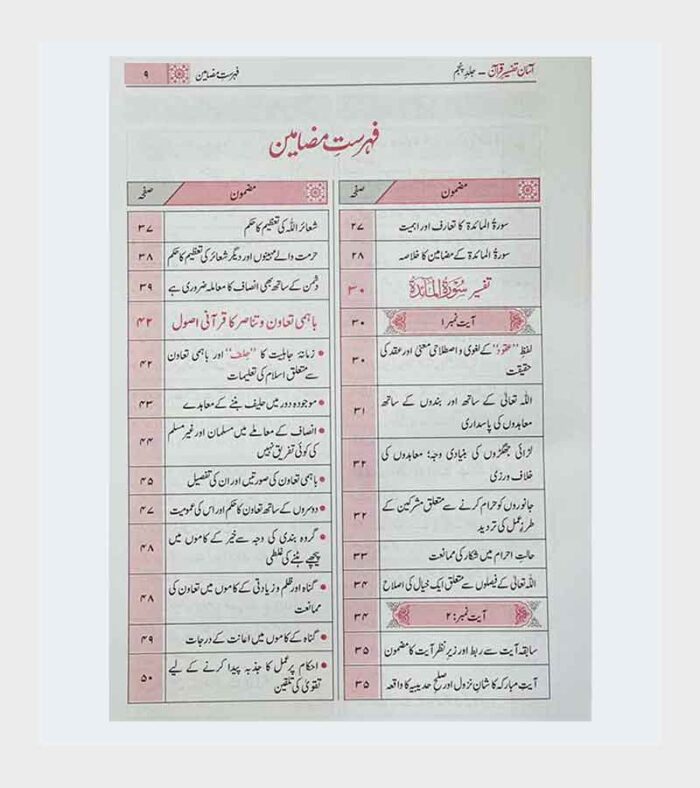 آسان تفسیر قرآن – جلد پنجم
فہرست مضامین
۹
فہرستِ مضامین
مضمون
صفحہ
سورۃ المائدۃ کا تعارف اور اہمیت
۲۷
سورۃ المائدۃ کے مضامین کا خلاصہ
۲۸
تفسیر سُوْرَۃُ الْمَائِدَۃ
۳۰
آیت نمبر ۱
۳۰
لفظ ’’عقود‘‘ کے لغوی و اصطلاحی معنٰی اور عقد کی
حقیقت
۳۰
اللہ تعالیٰ کے ساتھ اور بندوں کے ساتھ
معاہدوں کی پاسداری
۳۱
لڑائی جھگڑوں کی بنیادی وجہ؛ معاہدوں کی
خلاف ورزی
۳۲
جانوروں کو حرام کرنے سے متعلق مشرکین کے
طرزِ عمل کی تردید
۳۲
حالتِ احرام میں شکار کی ممانعت
۳۳
اللہ تعالیٰ کے فیصلوں سے متعلق ایک خیال کی اصلاح
۳۴
آیت نمبر: ۲
۳۴
سابقہ آیت سے ربط اور زیرِ نظر آیت کا مضمون
۳۵
آیتِ مبارکہ کا شانِ نزول اور صلح حدیبیہ کا واقعہ
۳۵
مضمون
صفحہ
شعائر اللہ کی تعظیم کا حکم
۳۷
حرمت والے مہینوں اور دیگر شعائر کی تعظیم کا حکم
۳۸
دشمن کے ساتھ بھی انصاف کا معاملہ ضروری ہے
۳۹
باہمی تعاون و تناصر کا قرآنی اصول
۴۲
• زمانۂ جاہلیت کا ’’حِلف‘‘ اور باہمی تعاون
سے متعلق اسلام کی تعلیمات
۴۲
• موجودہ دور میں حلیف بننے کے معاہدے
۴۳
• انصاف کے معاملے میں مسلمان اور غیر مسلم
کی کوئی تفریق نہیں
۴۴
• باہمی تعاون کی صورتیں اور ان کی تفصیل
۴۵
• دوسروں کے ساتھ تعاون کا حکم اور اس کی عمومیت
۴۷
• گروہ بندی کی وجہ سے خیر کے کاموں میں
پیچھے ہٹنے کی غلطی
۴۸
• گناہ اور ظلم و زیادتی کے کاموں میں تعاون کی
ممانعت
۴۸
• گناہ کے کاموں میں اعانت کے درجات
۴۹
• احکام پر عمل کا جذبہ پیدا کرنے کے لیے
تقویٰ کی تلقین
۵۰